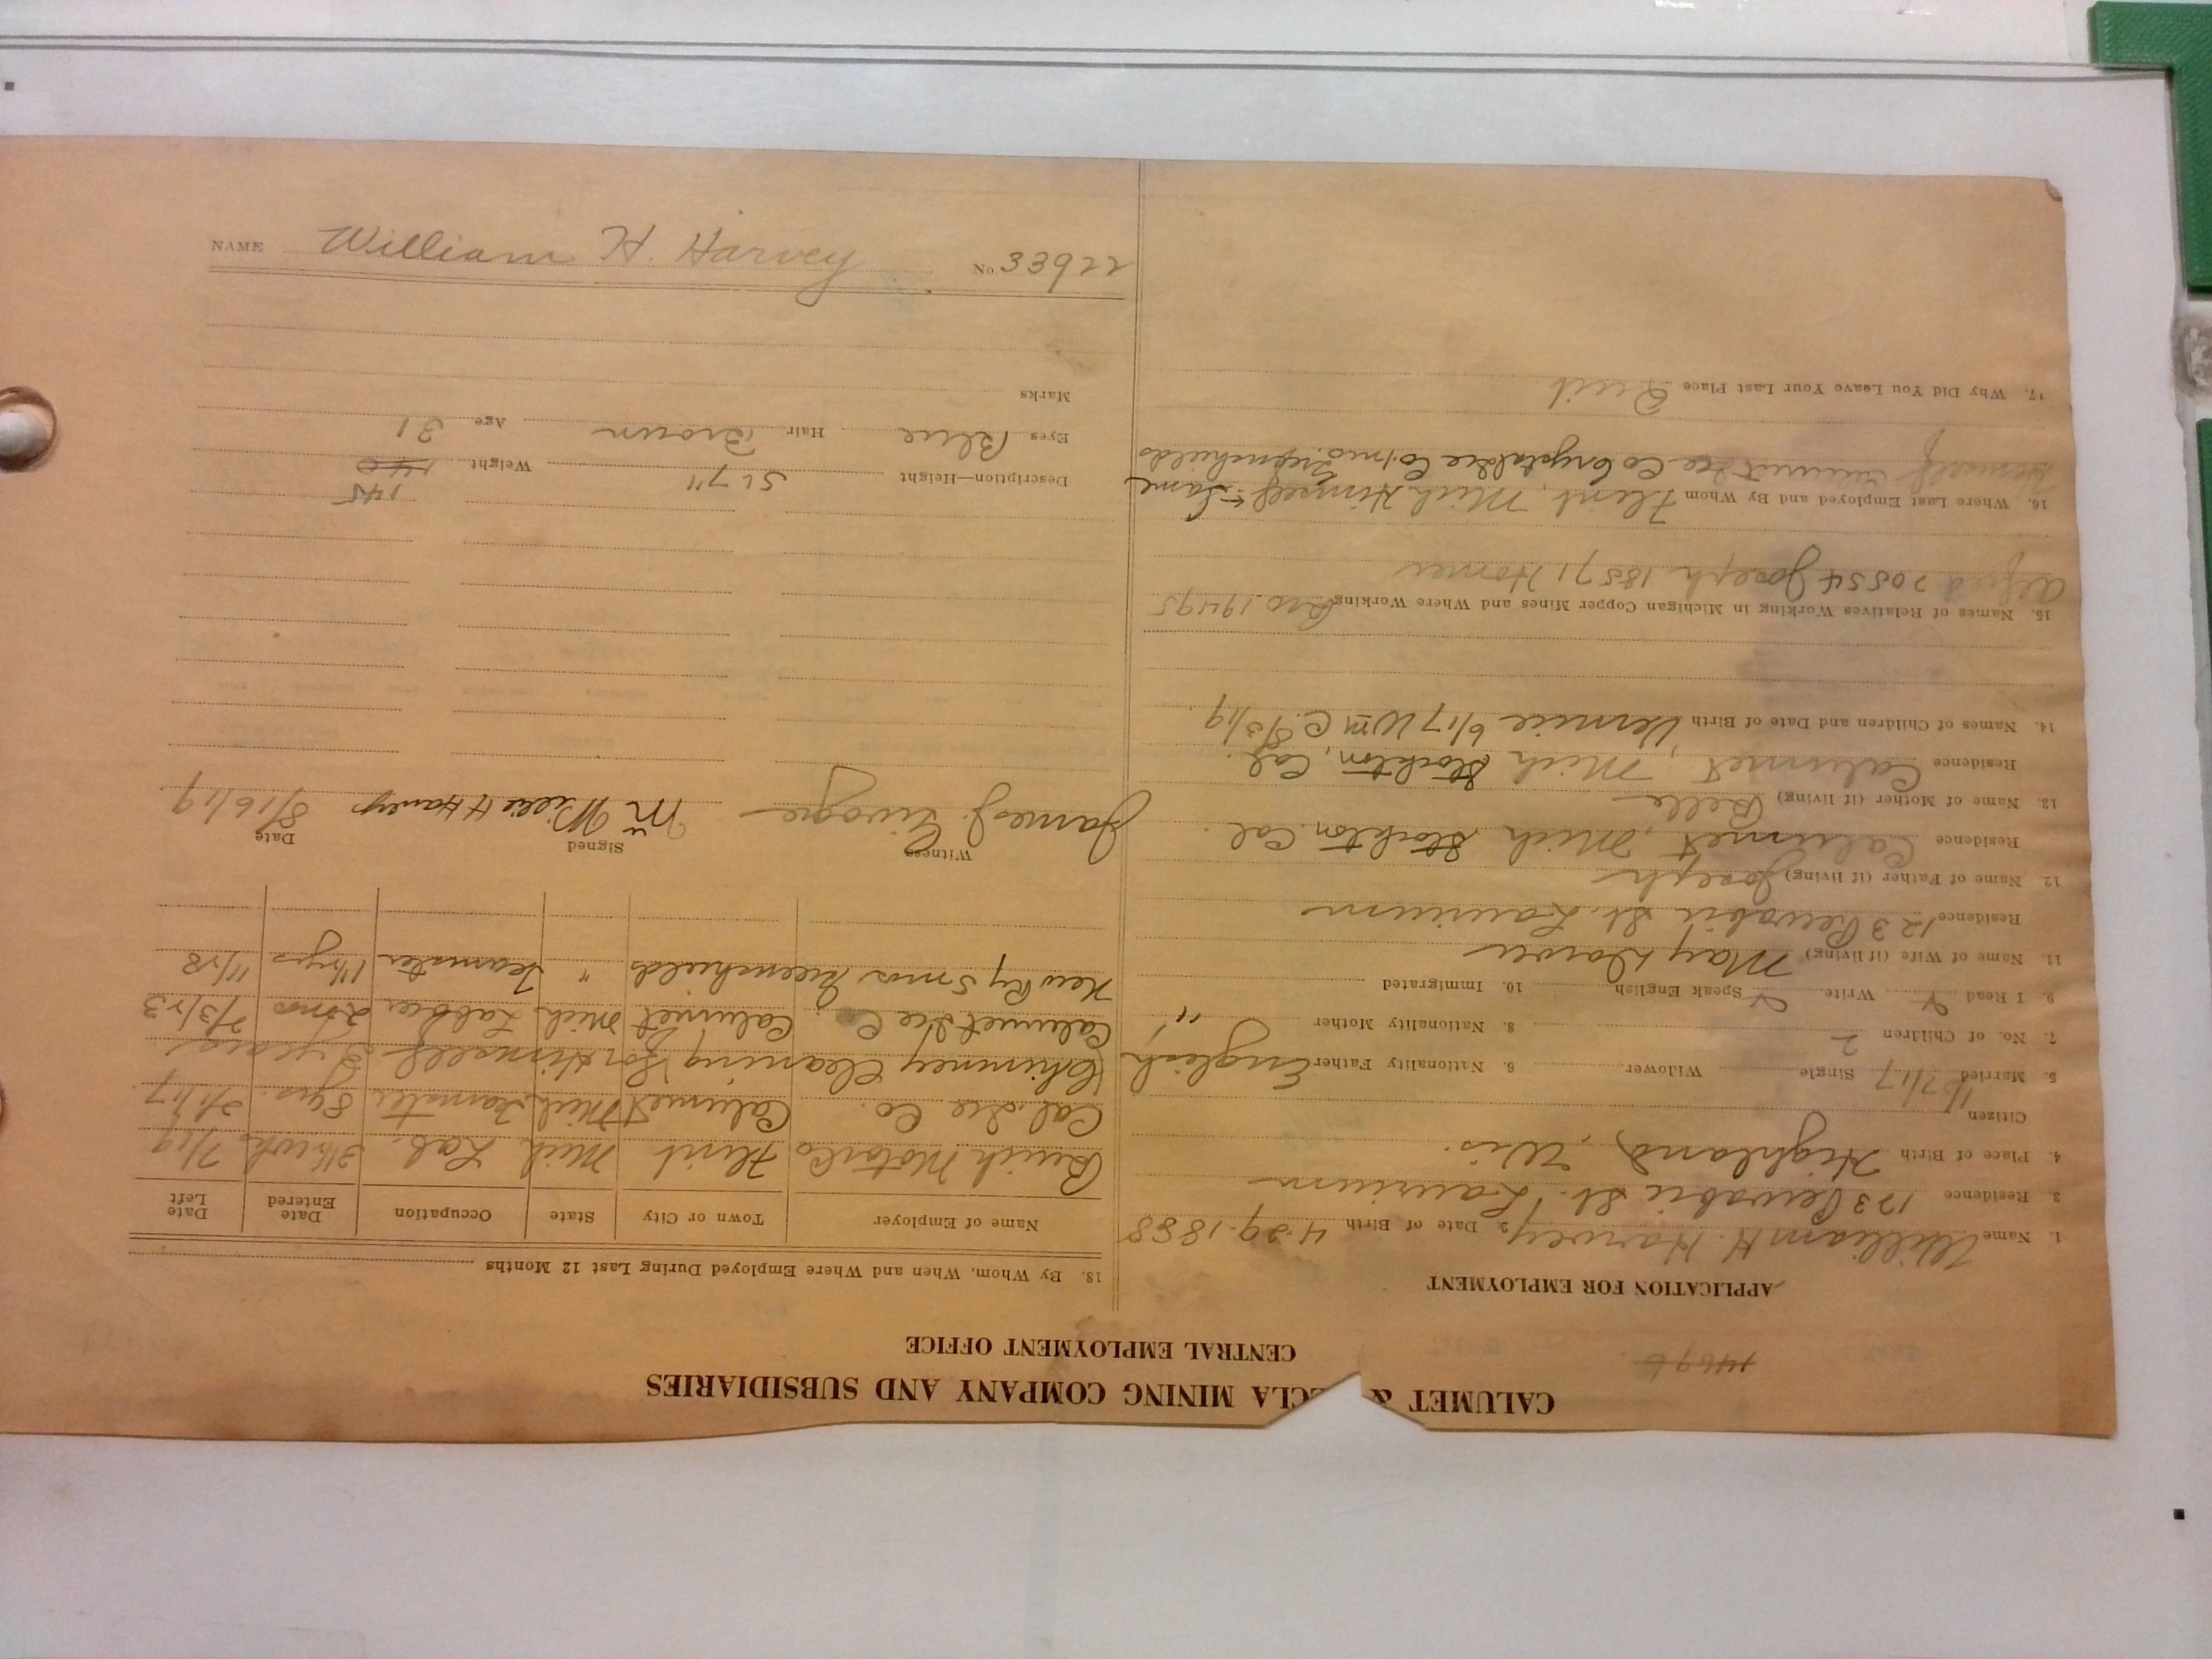 CALUMET & ECLA MINING COMPANY AND SUBSIDIARIES
CENTRAL EMPLOYMENT OFFICE
14696
APPLICATION FOR EMPLOYMENT
1. Name William H. Harvey 2. Date of Birth 4-29-1888
3. Residence 123 Pewabic St. Laurium
4. Place of Birth Highland, Wis.
Citizen
5. Married 1/27/17 Single Widower 6. Nationality Father English
7. No. of Children 2 8. Nationality Mother "
9. I Read Y Write Speak English Y 10. Immigrated
11. Name of Wife (if living) May
Residence 123 Pewabic St. Laurium
12. Name of Father (if living) Joseph
Residence Calumet, Mich Stockton, Cal.
13. Name of Mother (if living) Belle
Residence Calumet, Mich Stockton, Cal.
14. Names of Children and Date of Birth Vernice 6/17 Wm C. 8/3/19.
15. Names of Relatives Working in Michigan Copper Mines and Where Working Bro. 19495
Alfred 20554 Joseph 18571 Homer
16. Where Last Employed and By Whom Flint, Mich Himself Same
Himself Calumet Ice Co Crystal Ice Co.
17. Why Did You Leave Your Last Place Quit
18. By Whom, When and Where Employed During Last 12 Months
Name of Employer Town or City State Occupation Date Entered Date Left
Buick Motor Co Flint Mich Lab. 3½ wks 7/19
Cal. Ice Co. Calumet Mich. Teamster 8 yrs. 2/1/17
Chimney Cleaning for Himself 2 years
Calumet Ice Co. Calumet Mich. Laborer 2 mos 7/3/23
New Ry 5 mos Greenshields " Teamster 1½ yrs 11/28
Witness Signed Date
James J. M Willie H Harvey 8/16/19
145
Description—Height 5' 7" Weight 140
Eyes Blue Hair Brown Age 31
Marks
NAME William H. Harvey No. 33922